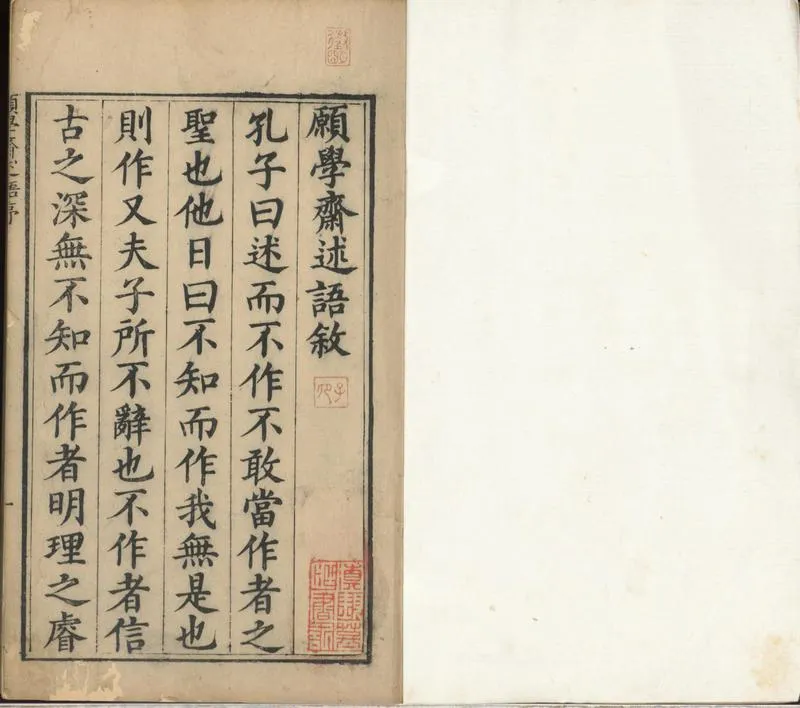 願學齋述語敘
孔子曰述而不作不敢當作者之
聖也他日曰不知而作我無是也
則作又夫子所不辭也不作者信
古之深無不知而作者明理之睿